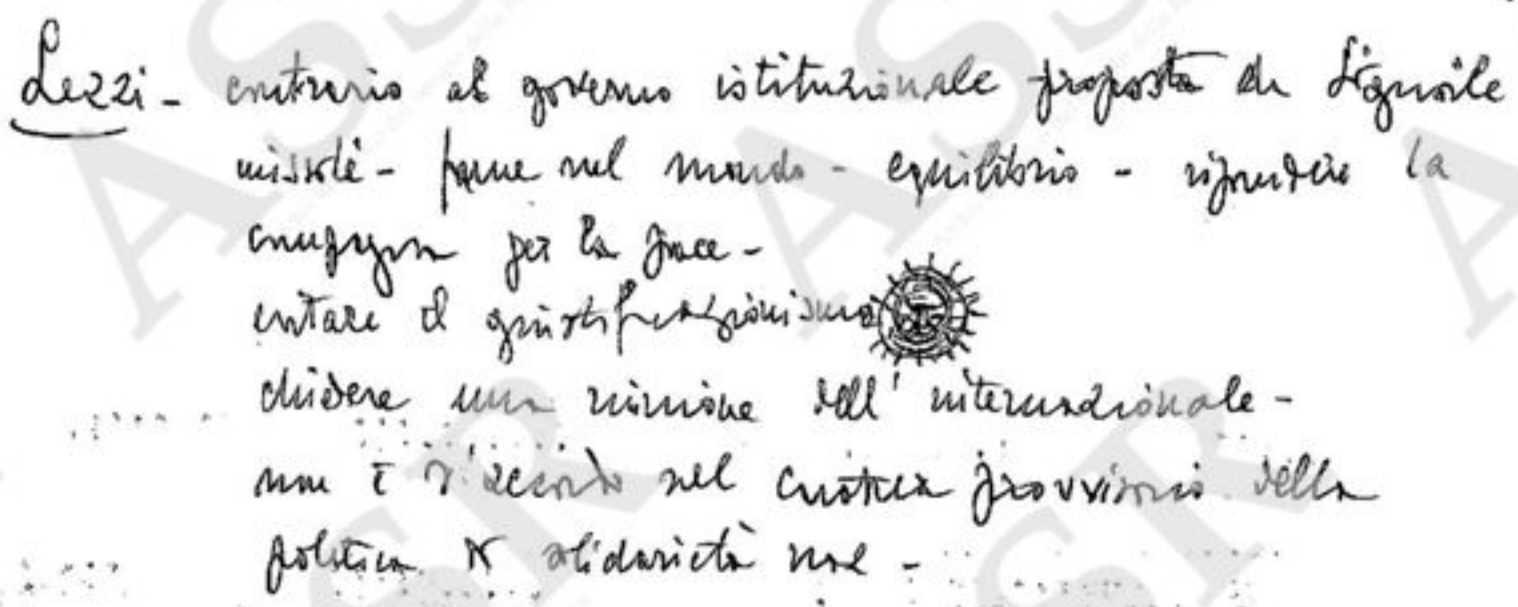 Lezzi - contrario al governo istituzionale proposta da Signorile
missili - fame nel mondo - equilibrio - riprendere la
campagna per la pace -
evitare il giustificazionismo
chiedere una riunione dell'internazionale -
non è d'accordo nel carattere provvisorio della
politica di solidarietà naz -
ASSR